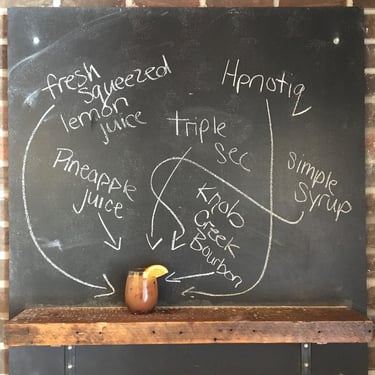 fresh
squeezed
lemon
juice
Hpnotiq
Triple
sec
Pineapple
juice
simple
syrup
Knob
Creek
Bourbon